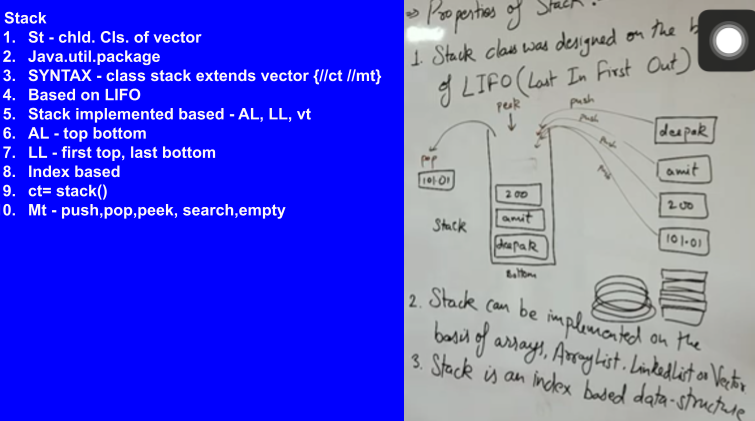 Stack
1. St - chld. Cls. of vector
2. Java.util.package
3. SYNTAX - class stack extends vector {//ct //mt}
4. Based on LIFO
5. Stack implemented based - AL, LL, vt
6. AL - top bottom
7. LL - first top, last bottom
8. Index based
9. ct= stack()
0. Mt - push,pop,peek, search,empty
⇒ Properties of Stack:
1. Stack class was designed on the b
of LIFO (Last In First Out)
peek
push
push
push
push
pop
101.01
deepak
amit
200
101.01
200
amit
deepak
Stack
Bottom
2. Stack can be implemented on the
basis of arrays, ArrayList, LinkedList or Vector
3. Stack is an index based data-structure